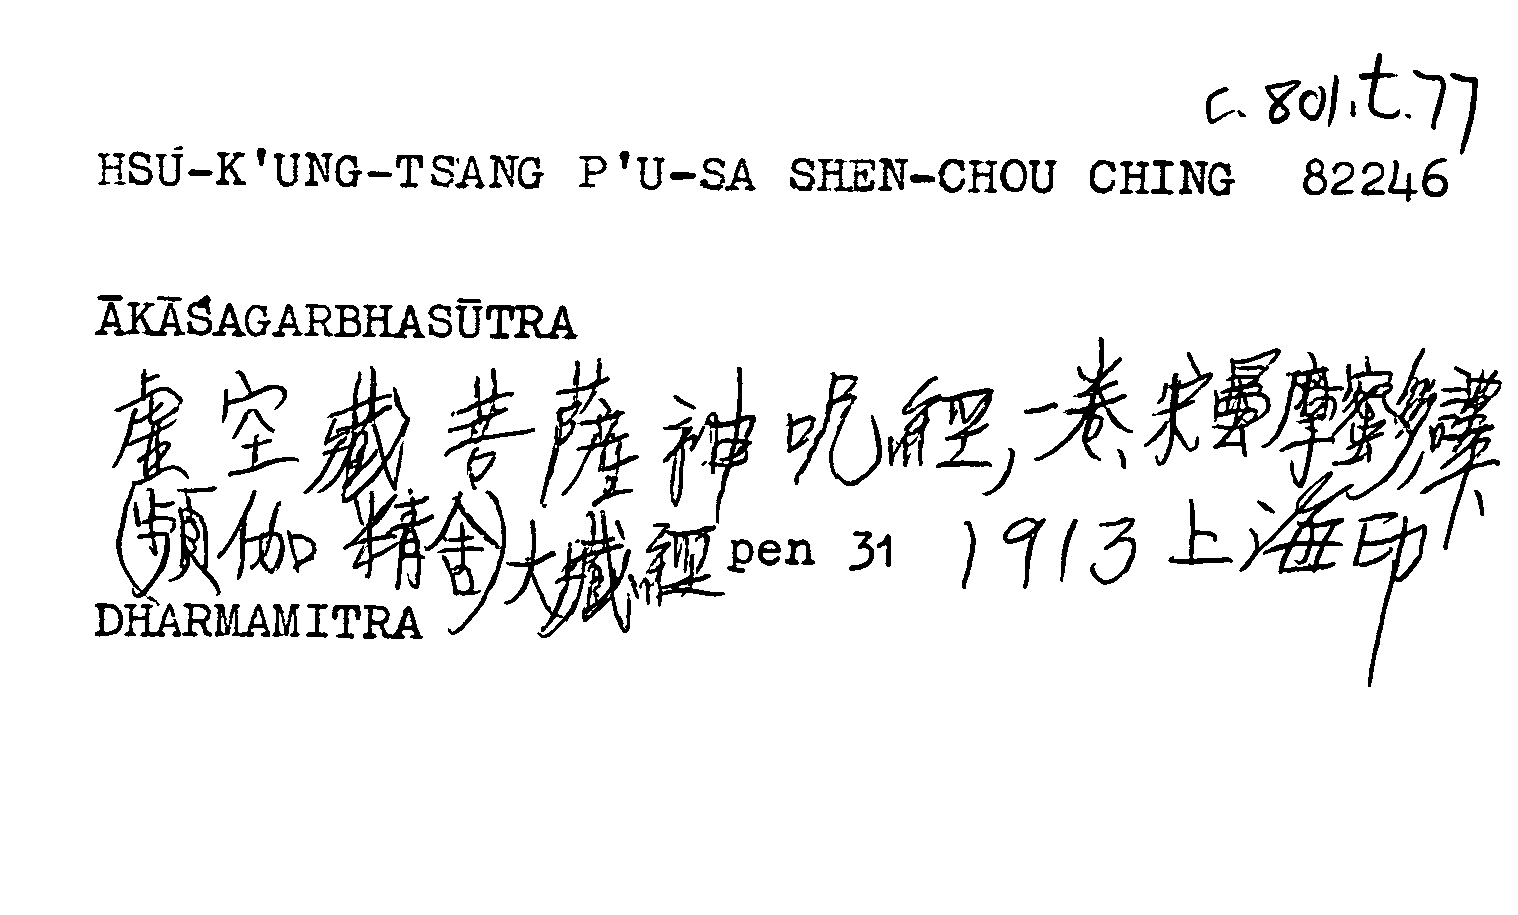 c. 801.t.77
HSÜ-K'UNG-TSANG P'U-SA SHEN-CHOU CHING 82246
ĀKĀŚAGARBHASŪTRA
虛空藏菩薩神呪經, 一卷、宋曇摩蜜多譯、
(頻伽精舍)大藏經 pen 31 1913 上海印
DHARMAMITRA